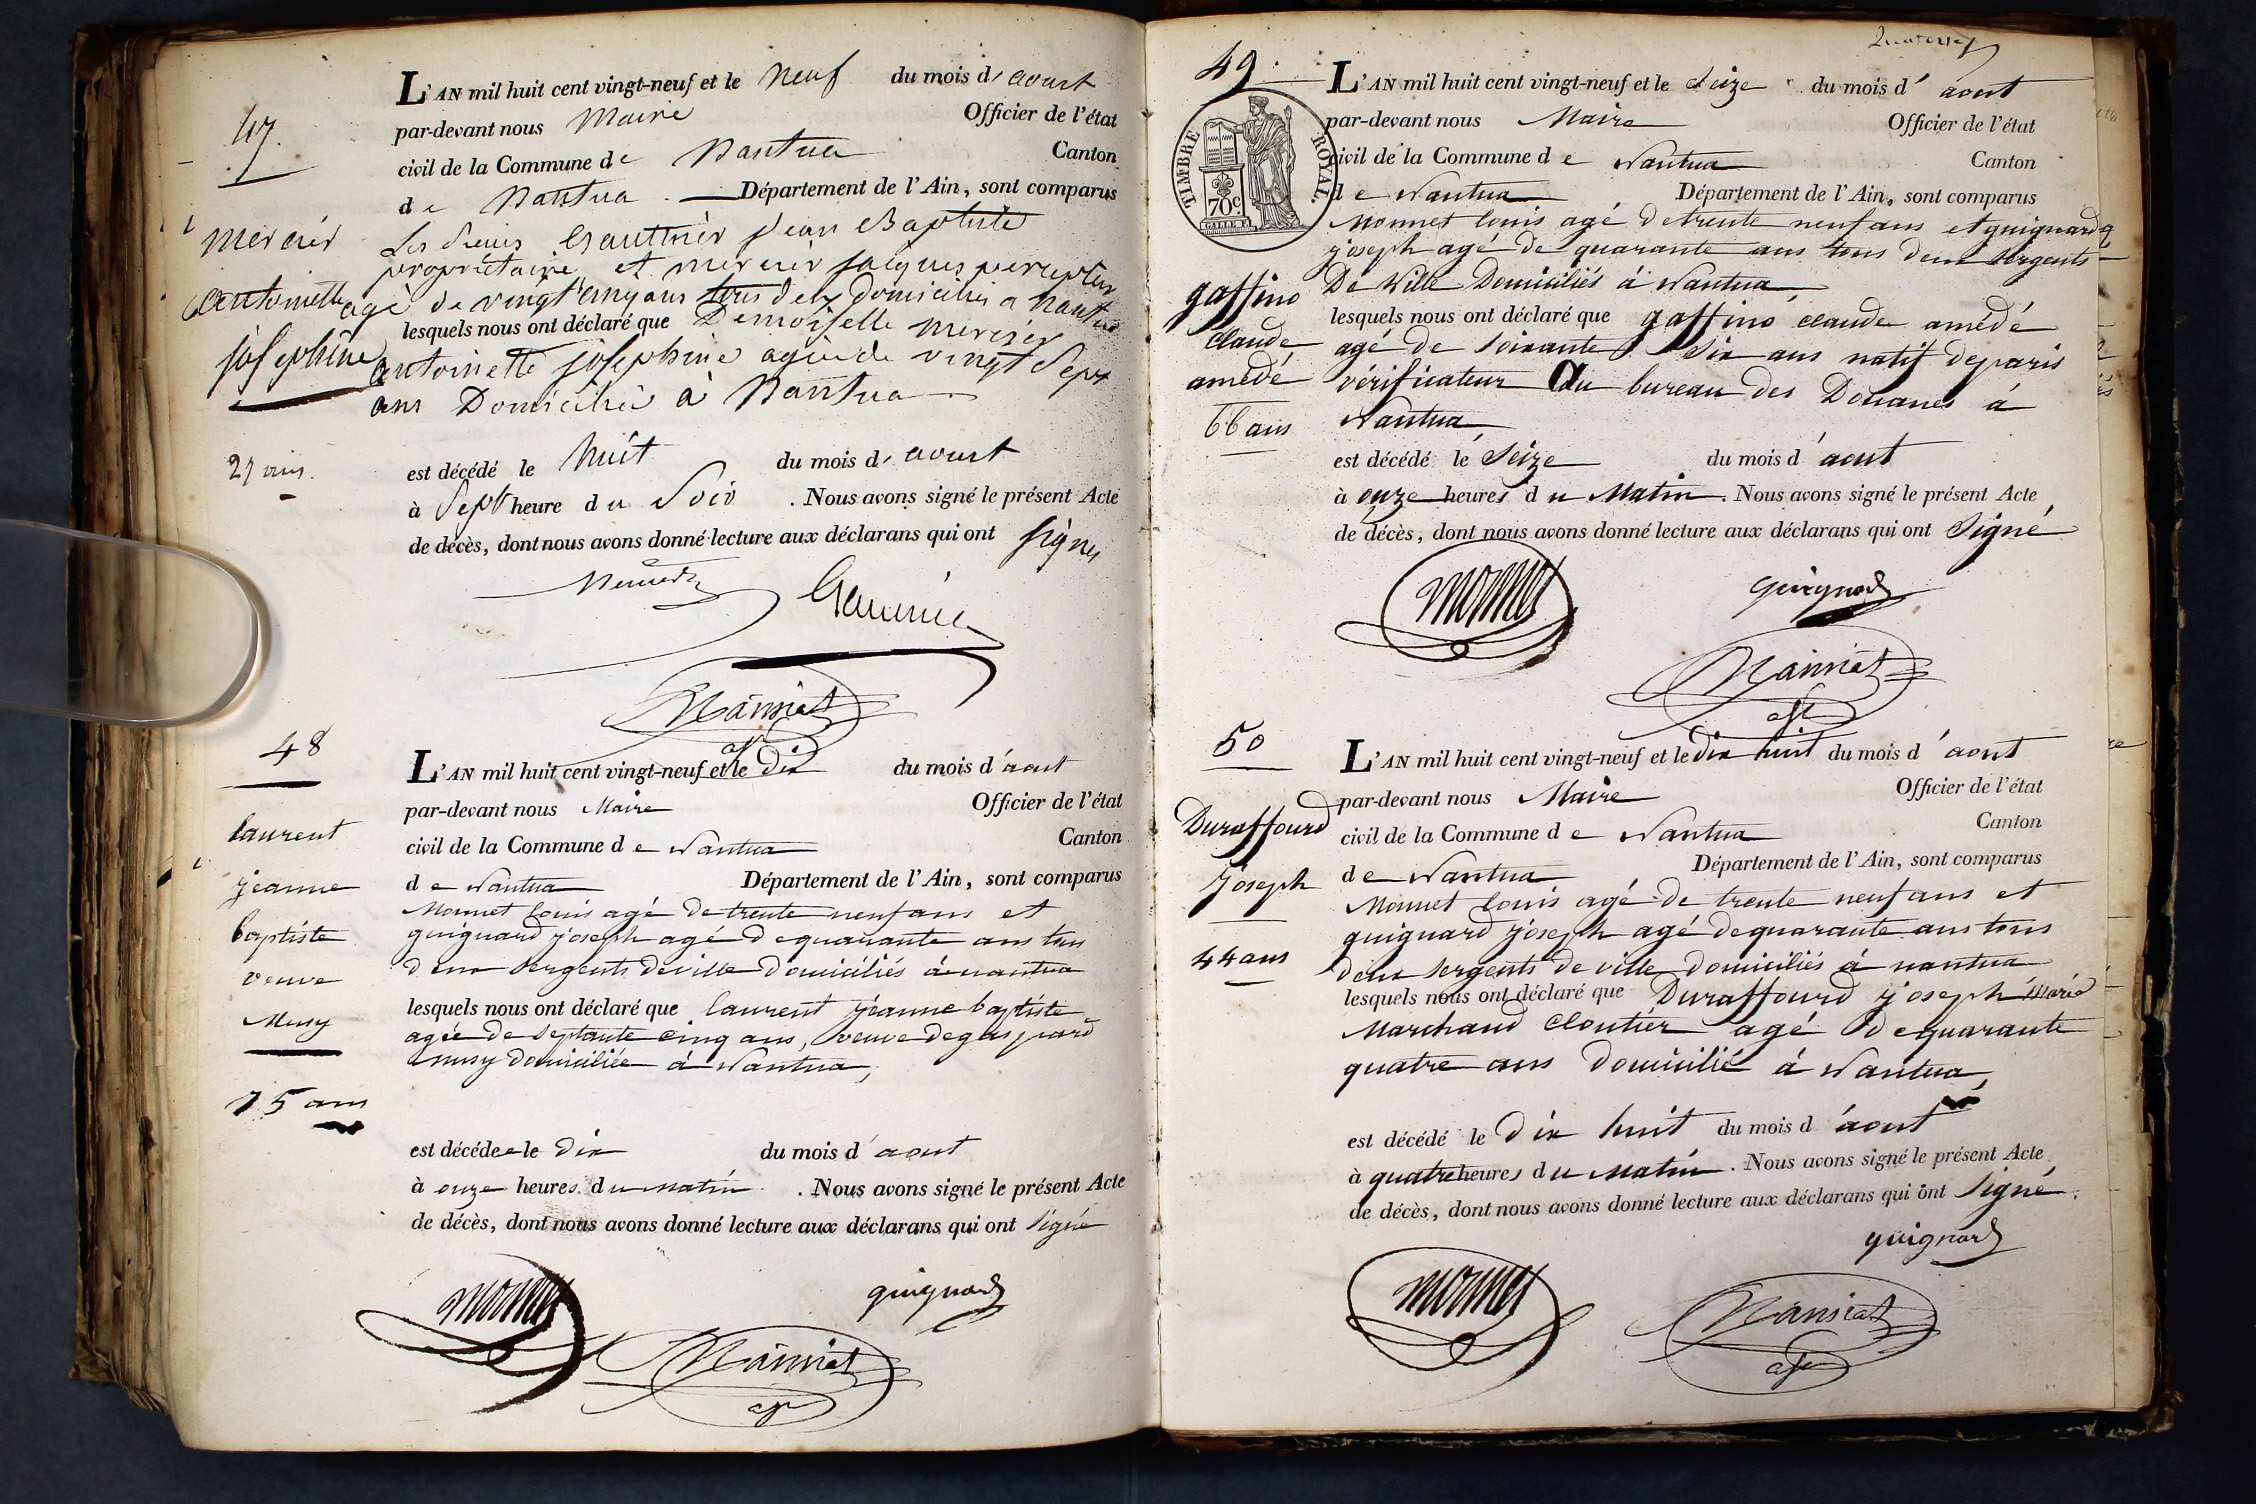 47.
L'AN mil huit cent vingt-neuf et le neuf du mois d'aoust
par-devant nous Maire Officier de l'état
civil de la Commune de Nantua Canton
de Nantua Département de l'Ain, sont comparus
mercier
Les sieurs Gauthier Jean Baptiste
propriétaire et mercier jacques percepteur
antoinette
agé de vingt cinq ans tous deux domiciliés a Nantua
lesquels nous ont déclaré que Demoiselle mercier
josephine
antoinette josephine agée de vingt sept
ans Domiciliée à Nantua
27 ans.
est décédé le huit du mois d'aoust
à Sept heure du Soir . Nous avons signé le présent Acte
de décès, dont nous avons donné lecture aux déclarans qui ont signés
48
L'AN mil huit cent vingt-neuf et le dix du mois d'aout
par-devant nous Maire Officier de l'état
laurent
civil de la Commune de Nantua Canton
jeanne
de Nantua Département de l'Ain, sont comparus
Monnet louis agé de trente neuf ans et
baptiste
guignard joseph agé de quarante ans tous
veuve
deux sergents de ville domiciliés à nantua
Musy
lesquels nous ont déclaré que laurent jeanne baptiste
agée de septante cinq ans, veuve de gaspard
musy domiciliée à Nantua,
75 ans
est décédée le dix du mois d'aout
à onze heures du matin . Nous avons signé le présent Acte
de décès, dont nous avons donné lecture aux déclarans qui ont signé
monnet guignard
49.
L'AN mil huit cent vingt-neuf et le Seize du mois d'aout
par-devant nous Maire Officier de l'état
TIMBRE ROYAL.
70c.
civil de la Commune de Nantua Canton
de Nantua Département de l'Ain, sont comparus
Monnet louis agé de trente neuf ans et guignard
joseph agé de quarante ans tous deux sergents
De Ville Domiciliés à Nantua
gaffino
lesquels nous ont déclaré que gaffino claude amédé
claude
agé de soixante six ans natif de paris
amédé
vérificateur Au bureau des Douanes à
66 ans
Nantua
est décédé le Seize du mois d'aout
à onze heures du Matin . Nous avons signé le présent Acte
de décès, dont nous avons donné lecture aux déclarans qui ont Signé
monnet guignard
50
L'AN mil huit cent vingt-neuf et le dix huit du mois d'aout
par-devant nous Maire Officier de l'état
Duraffourd
civil de la Commune de Nantua Canton
joseph
de Nantua Département de l'Ain, sont comparus
Monnet louis agé de trente neuf ans et
guignard joseph agé de quarante ans tous
44 ans
deux sergents de ville domiciliés à nantua
lesquels nous ont déclaré que Duraffourd joseph Marié
Marchand Cloutier agé de quarante
quatre ans domicilié à Nantua,
est décédé le dix huit du mois d'aout
à quatre heures du Matin . Nous avons signé le présent Acte
de décès, dont nous avons donné lecture aux déclarans qui ont Signé.
guignard
monnet